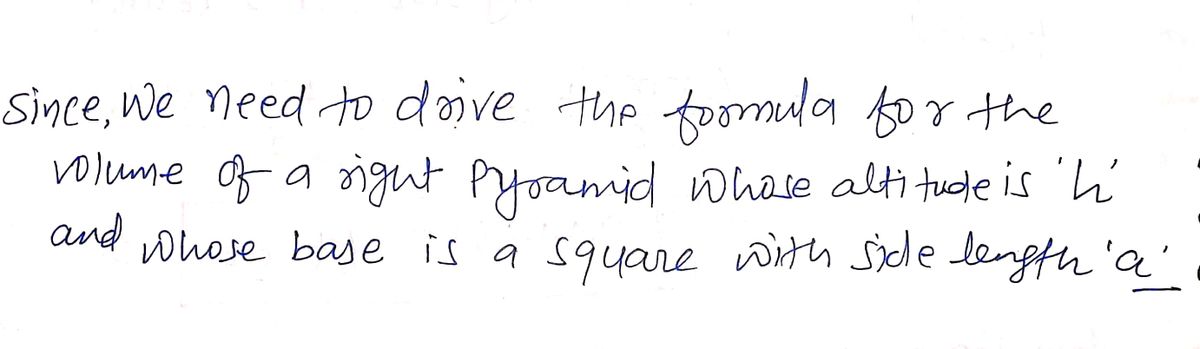 Since, We need to drive the formula for the
volume of a right Pyramid whose altitude is 'h'
and whose base is a square with side length 'a'